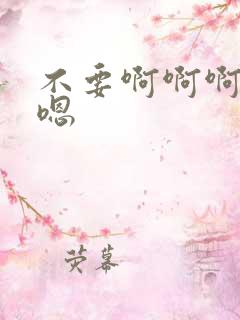 不要啊啊啊
嗯
荧幕